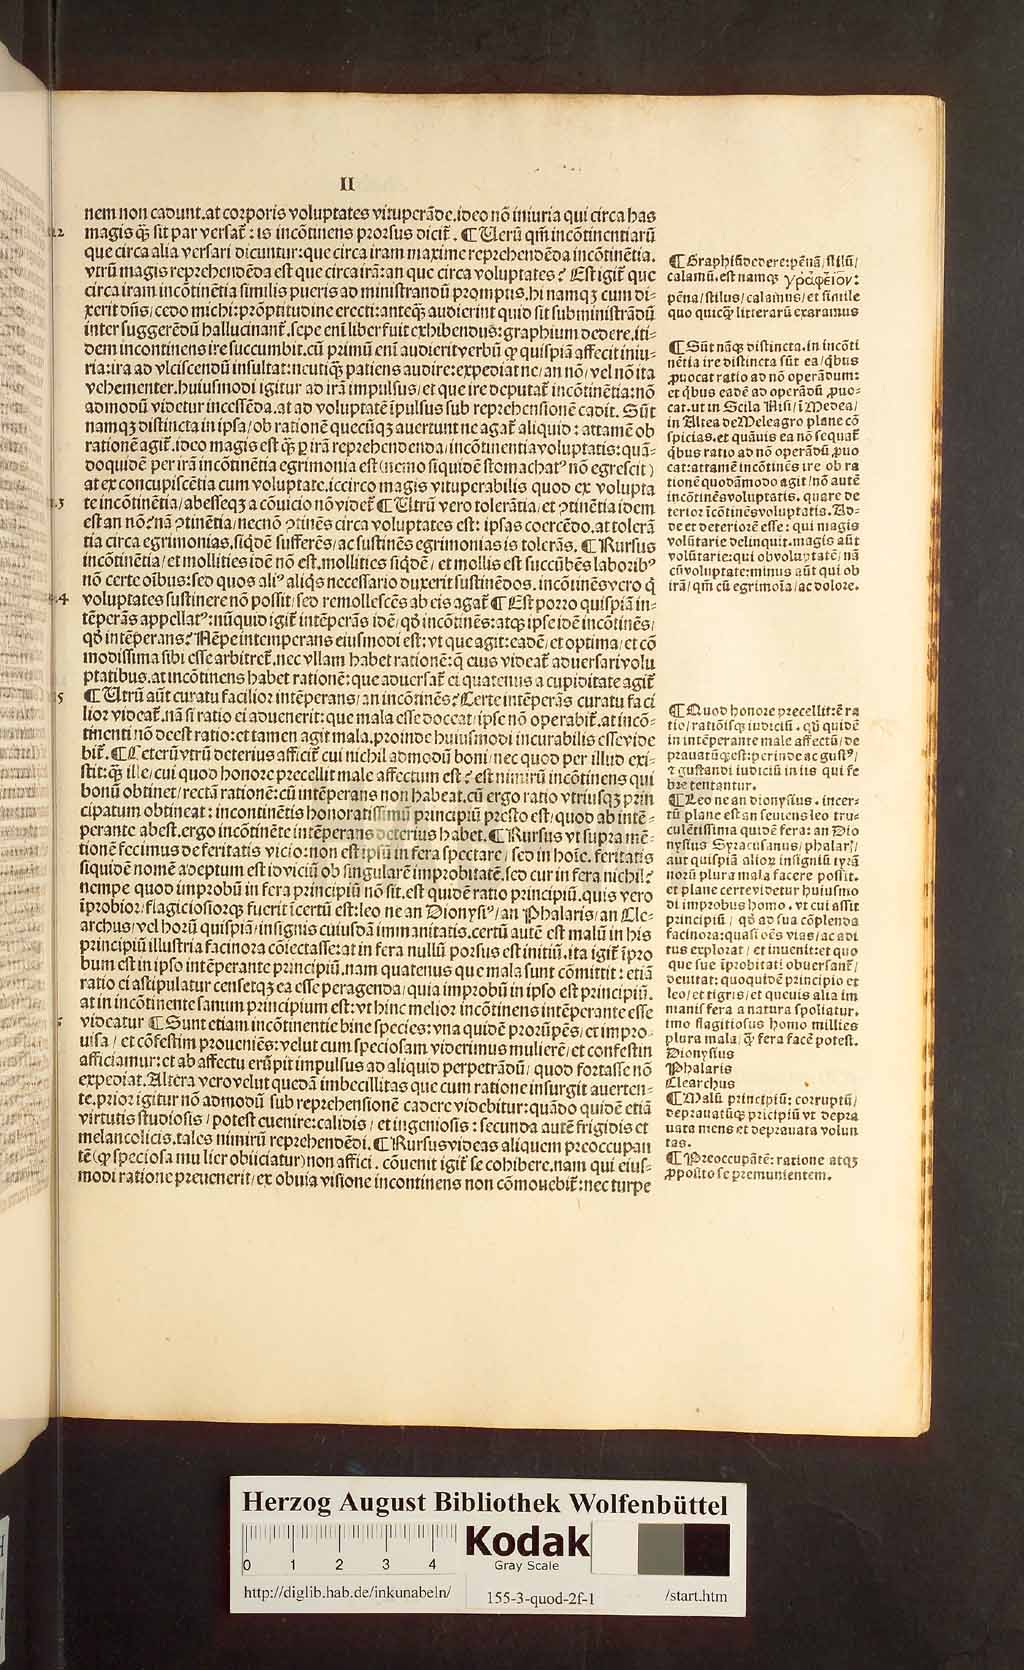 II
nem non cadunt.at corporis voluptates vituperāde.ideo nō iniuria qui circa has
magis q̄ȝ sit par versat̄: is incōtinens prorsus dicit̄. ¶ Uerū qm̄ incōtinentiarū
que circa alia versari dicuntur:que circa iram maxime reprehendēda incōtinētia.
vtrū magis reprehendēda est que circa irā:an que circa voluptates? Est igit̄ que
circa iram incōtinētia similis pueris ad ministrandū promptis.hi namqȝ cum di-
xerit dn̄s/cedo michi:prōptitudine erecti:anteq̄ȝ audierint quid sit subministrādū
inter suggerēdū hallucinant̄.sepe enī liber fuit exhibendus:graphium dedere.iti-
dem incontinens ire succumbit.cū primū enī audierit verbū qȝ quispiā affecit iniu-
ria:ira ad vlciscendū insultat:neutiq̄ȝ patiens audire:expediat ne/an nō/vel nō ita
vehementer.huiusmodi igitur ad irā impulsus/et que ire deputat̄ incōtinētia:nō
admodū videtur incessēda.at ad voluptatē īpulsus sub reprehensionē cadit. Sūt
namqȝ distincta in ipsa/ob rationē quecūqȝ auertunt ne agat̄ aliquid: attamē ob
rationē agit̄.ideo magis est q̄ȝ ꝑ irā reprehendenda/incōtinentia voluptatis:quā-
doquidē per irā incōtinētia egrimonia est(nemo siquidē stomachat᷒ nō egrescit)
at ex concupiscētia cum voluptate.iccirco magis vituperabilis quod ex volupta
te incōtinētia/abesseqȝ a cōuicio nō videt̄ ¶ Utrū vero tolerātia/et ꝯtinētia idem
est an nō?nā ꝯtinētia/necnō ꝯtinēs circa voluptates est: ipsas coercēdo.at tolerā
tia circa egrimonias.siqdē sufferēs/ac sustinēs egrimonias is tolerās. ¶ Rursus
incōtinētia/et mollities idē nō est.mollities siqdē/et mollis est succūbēs laborib᷒
nō certe oībus:sed quos ali᷒ aliqs necessario duxerit sustinēdos.incōtinēs vero q̄
voluptates sustinere nō possit/sed remollescēs ab eis agat̄ ¶ Est porro quispiā in-
tēperās appellat᷒:nūquid igit̄ intēperās idē/qd̄ incōtinēs:atqȝ ipse idē incōtinēs/
qd̄ intēperans? Nēpe intemperans eiusmodi est:vt que agit:eadē/et optima/et cō
modissima sibi esse arbitret̄.nec vllam habet rationē:q̄ eius videat̄ aduersari volu
ptatibus.at incōtinens habet rationē:que aduersat̄ ei quatenus a cupiditate agit̄
¶ Utrū aūt curatu facilior intēperans/an incōtinēs? Certe intēperās curatu faci
lior videat̄.nā si ratio ei aduenerit:que mala esse doceat/ipse nō operabit̄.at incō-
tinenti nō deest ratio:et tamen agit mala.proinde huiusmodi incurabilis esse vide
bit̄. ¶ Ceterū vtrū deterius afficit̄ cui nichil admodū boni/nec quod per illud exi-
stit:q̄ȝ ille/cui quod honore precellit male affectum est? est nimirū incōtinens qui
bonū obtinet/rectā rationē:cū intēperans non habeat.cū ergo ratio vtriusqȝ prin
cipatum obtineat: incontinētis honoratissimū principiū presto est/quod ab intē-
perante abest.ergo incōtinēte intēperans deterius habet. ¶ Rursus vt supra mē-
tionē fecimus de feritatis vicio:non est ipsū in fera spectare/sed in hoīe. feritatis
siquidē nomē adeptum est id viciū ob singularē improbitatē.sed cur in fera nichil?
nempe quod improbū in fera principiū nō sit.est quidē ratio principiū.quis vero
īprobior/flagiciosiorqȝ fuerit īcertū est:leo ne an Dionysi᷒/an Phalaris/an Cle-
archus/vel horū quispiā/insignis cuiusdā immanitatis.certū autē est malū in his
principiū illustria facinora cōiectasse:at in fera nullū porsus est initiū.ita igit̄ īpro
bum est in ipso intēperante principiū.nam quatenus que mala sunt cōmittit: etiā
ratio ei astipulatur censetqȝ ea esse peragenda/quia improbū in ipso est principiū.
at in incōtinente sanum principium est:vt hinc melior incōtinens intēperante esse
videatur ¶ Sunt etiam incōtinentie bine species:vna quidē prorūpēs/et impro-
uisa/et cōfestim proueniēs:velut cum speciosam viderimus mulierē/et confestin
afficiamur:et ab affectu erūpit impulsus ad aliquid perpetrādū/quod fortasse nō
expediat.Altera vero velut quedā imbecillitas que cum ratione insurgit auerten-
te.prior igitur nō admodū sub reprehensionē cadere videbitur:quādo quidē etiā
virtutis studiosis/potest euenire:calidis/et ingeniosis: secunda autē frigidis et
melancolicis.tales nimirū reprehendēdi. ¶ Rursus videas aliquem preoccupan
tē(qȝ speciosa mulier obiiciatur)non affici. cōuenit igit̄ se cohibere.nam qui eius-
modi ratione preuenerit/ex obuia visione incontinens non cōmouebit̄:nec turpe
12
13
14
15
¶ Graphiū dedere:pēnā/stilū/
calamū.est namqȝ γραφεῖον:
pēna/stilus/calamus/et simile
quo quicq̄ȝ litterarū exaramus
¶ Sūt nāqȝ distincta.in incōti
nētia ire distincta sūt ea/qbus
ꝓuocat ratio ad nō operādum:
et qbus eadē ad operādū ꝓuo-
cat.ut in Scila Nisi/ī Medea/
in Altea de Meleagro plane cō
spicias.et quāuis ea nō sequat̄
qbus ratio ad nō operādū ꝓuo
cat:attamē incōtinēs ire ob ra
tionē quodāmodo agit/nō autē
incōtinēs voluptatis. quare de
terior īcōtinēs voluptatis. Ad-
de et deteriorē esse: qui magis
volūtarie delinquit.magis aūt
volūtarie:qui ob voluptatē/nā
cū voluptate:minus aūt qui ob
irā/qm̄ cū egrimoīa/ac dolore.
¶ Quod honore precellit:ē ra
tio/ratiōisqȝ iudiciū. qd̄ quidē
in intēperante male affectū/de
prauatūqȝ est:perinde ac gust᷒/
⁊ gustandi iudiciū in iis qui fe
bre tentantur.
¶ Leo ne an dionysius. incer-
tū plane est an seuiens leo tru-
culētissima quidē fera: an Dio
nysius Syracusanus/phalar/
aut quispiā alior insigniū tyrā
norū plura mala facere possit.
et plane certe videtur huiusmo
di improbus homo. vt cui assit
principiū/qd̄ ad sua cōplenda
facinora:quasi oēs vias/ac adi
tus explorat/et inuenit:et quo
que sue īprobitati obuersant̄/
deuitat:quoquidē principio et
leo/et tigris/et queuis alia im
manis fera a natura spoliatur.
imo flagitiosus homo millies
plura mala/q̄ȝ fera facē potest.
Dionysius
Phalaris
Clearchus
¶ Malū principiū: corruptū/
deprauatūqȝ pricipiū vt depra
uata mens et deprauata volun
tas.
¶ Preoccupātē: ratione atqȝ
ꝓposito se premunientem.
Herzog August Bibliothek Wolfenbüttel
0 1 2 3 4
Kodak
Gray Scale
http://diglib.hab.de/inkunabeln/
155-3-quod-2f-1
/start.htm